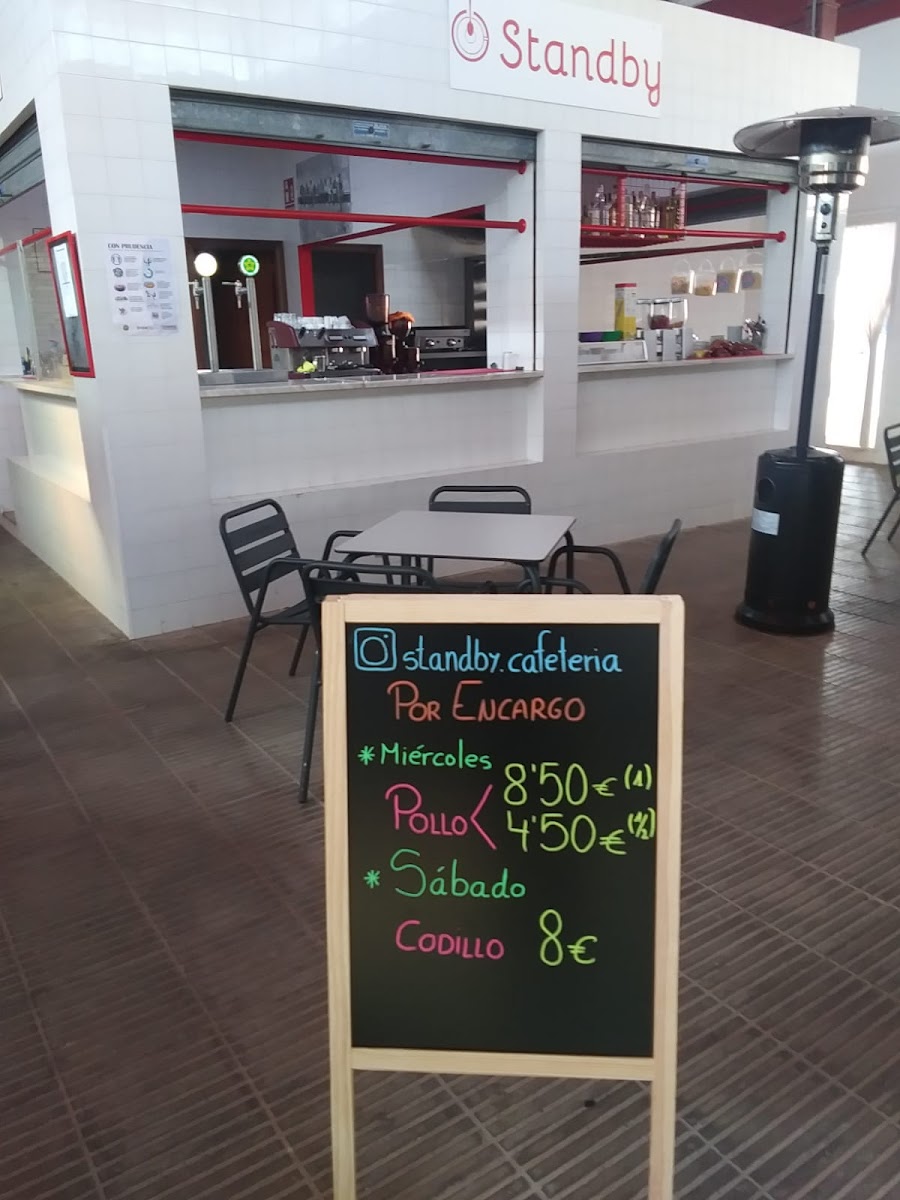 Standby
CON PRUDENCIA
standby.cafeteria
POR ENCARGO
* Miércoles
POLLO < 8'50€ (1)
4'50€ (1/2)
* Sábado
CODILLO 8€